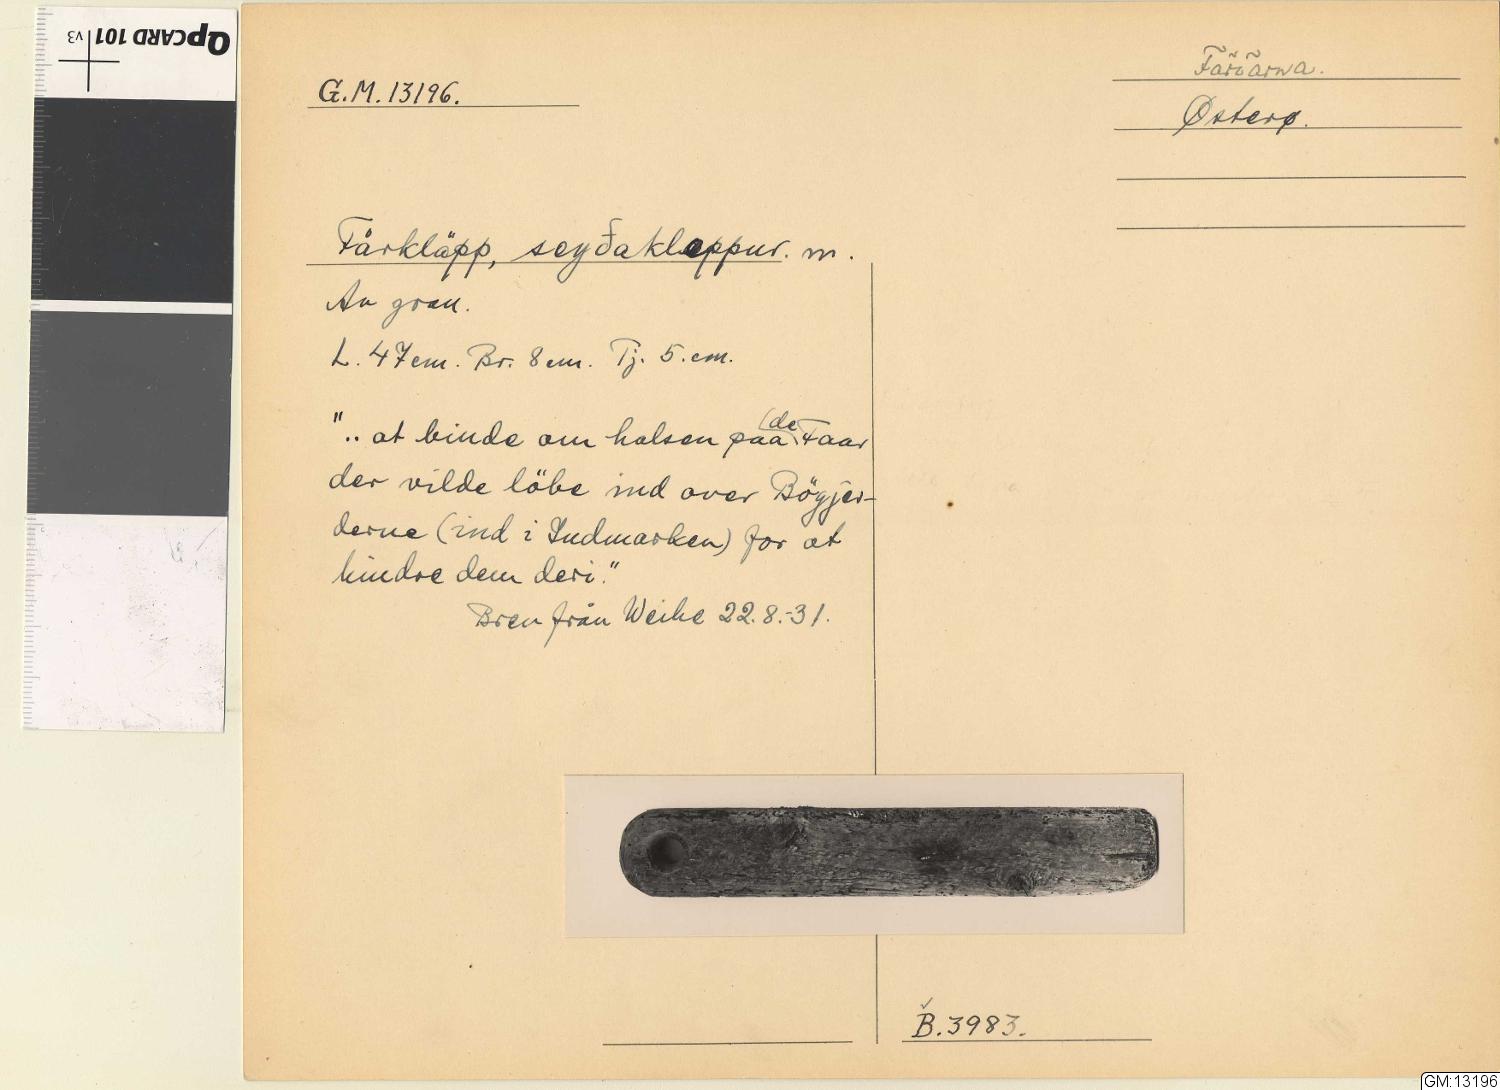 QpCARD 101 v3
G.M. 13196.
Färöarna.
Østerø.
Fårkläpp, seyðakleppur. m.
Av gran.
L. 47 cm. Br. 8 cm. Tj. 5. cm.
".. at binde om halsen paa (de) Faar
der vilde löbe ind over Bögjer-
derne (ind i Indmarken) for at
hindre dem deri."
Brev från Weihe 22.8.-31.
B. 3983.
GM:13196